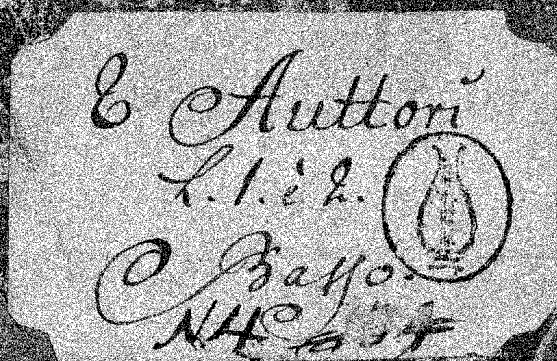 E Auttori
L. 1. è 2.
Basso.
N4